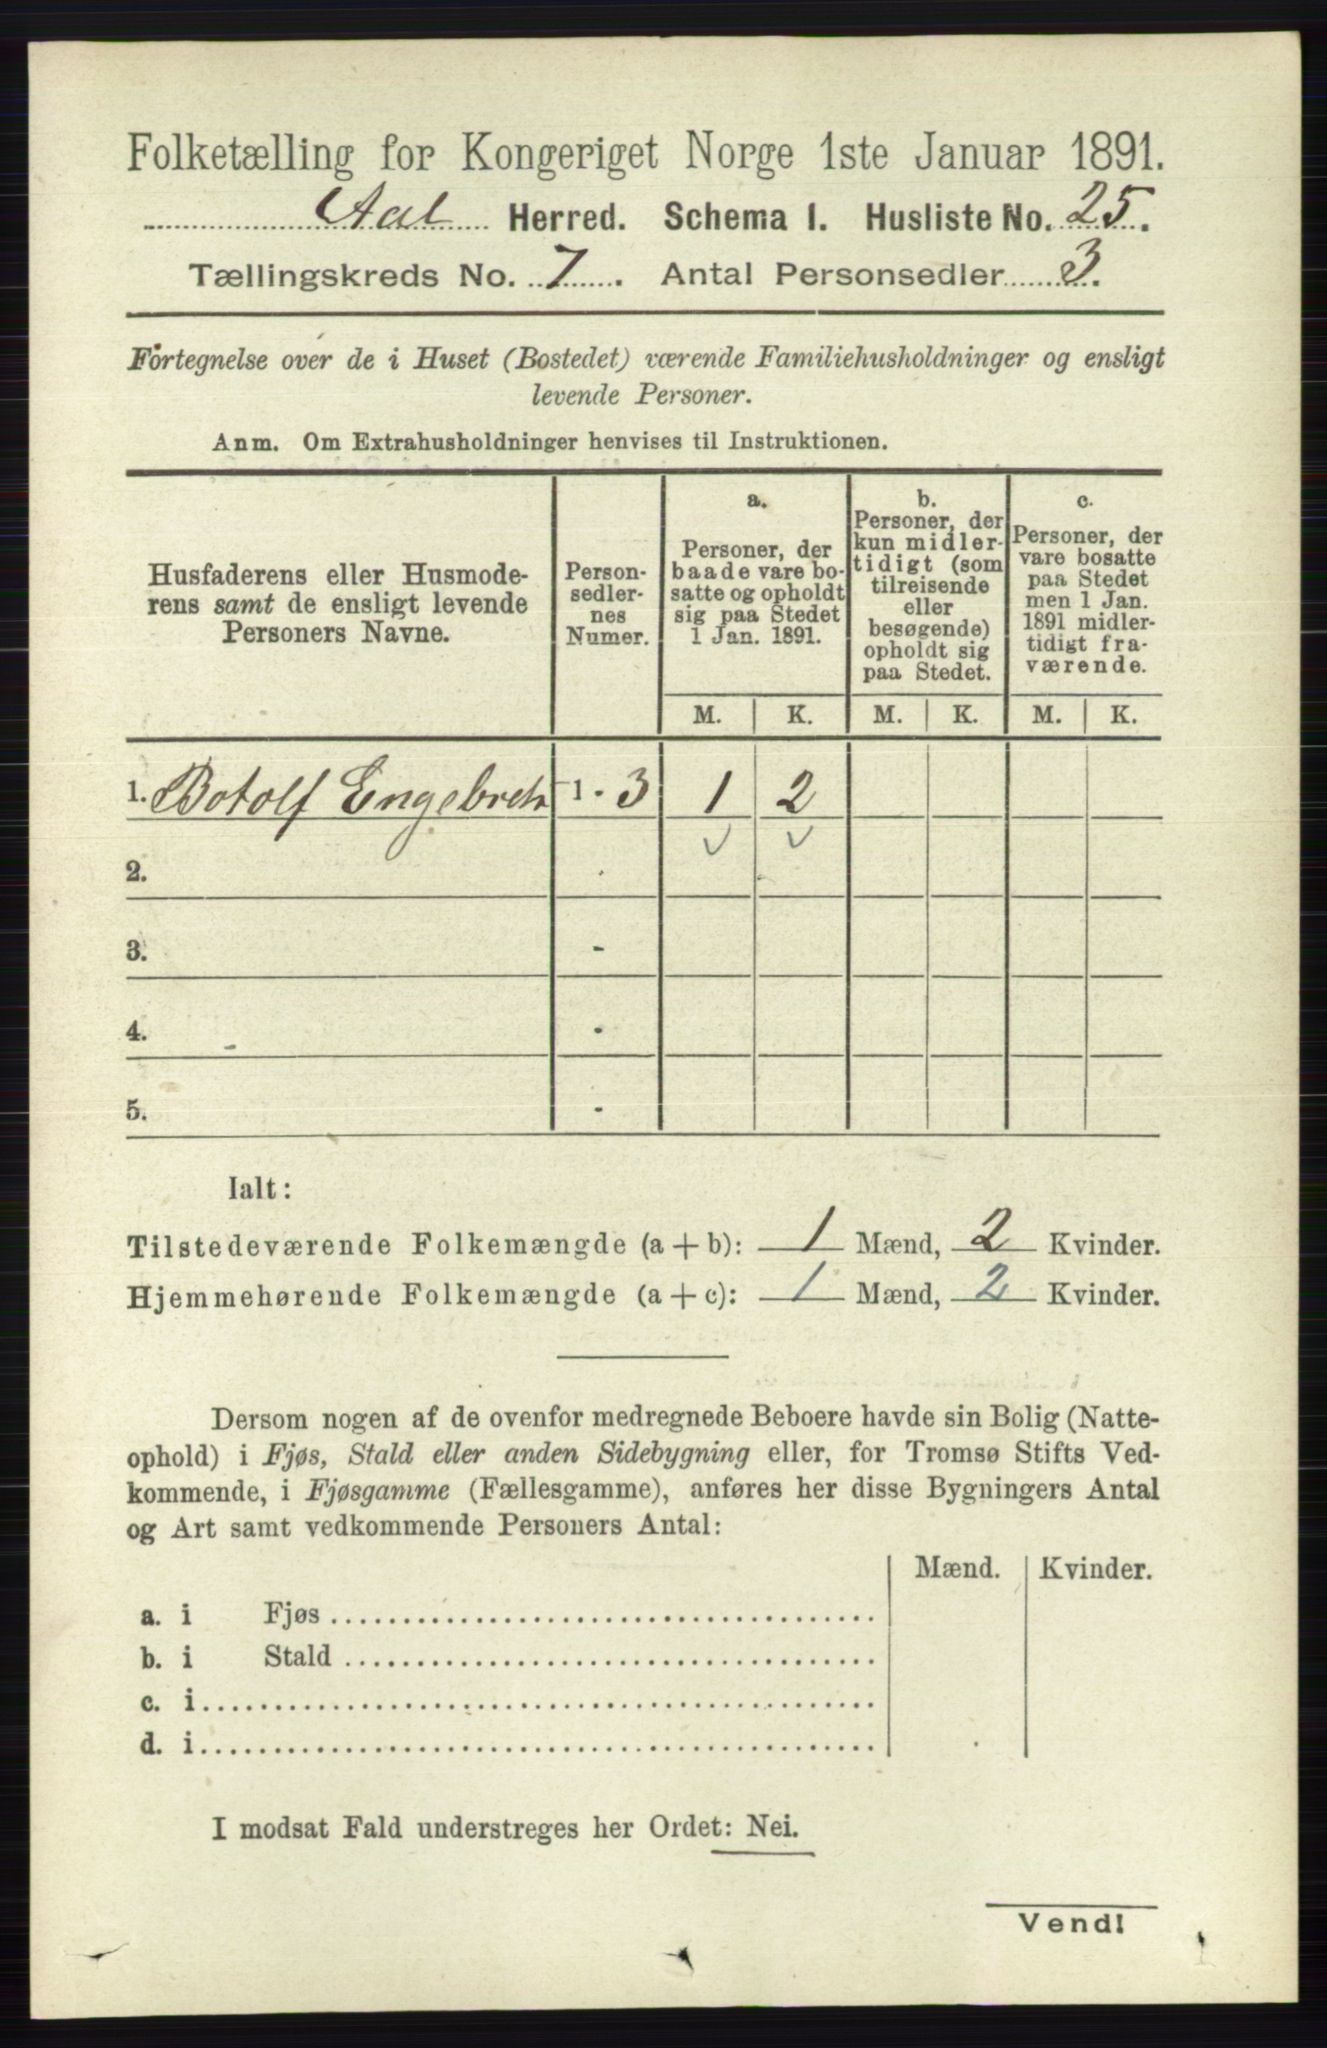 Folketælling for Kongeriget Norge 1ste Januar 1891.
Aal Herred. Schema 1. Husliste No. 25.
Tællingskreds No. 7. Antal Personsedler 3.
Fortegnelse over de i Huset (Bostedet) værende Familiehusholdninger og ensligt
levende Personer.
Anm. Om Extrahusholdninger henvises til Instruktionen.
Husfaderens eller Husmode-
rens samt de ensligt levende
Personers Navne.
Person-
sedler-
nes
Numer.
a.
Personer, der
baade vare bo-
satte og opholdt
sig paa Stedet
1 Jan. 1891.
b.
Personer, der
kun midler-
tidigt (som
tilreisende
eller
besøgende)
opholdt sig
paa Stedet.
c.
Personer, der
vare bosatte
paa Stedet
men 1 Jan.
1891 midler-
tidigt fra-
værende.
M. K. M. K. M. K.
1. Botolf Engebrets 1 - 3 1 2
2.
3. -
4. -
5. -
Ialt:
Tilstedeværende Folkemængde (a + b): 1 Mænd, 2 Kvinder.
Hjemmehørende Folkemængde (a + c): 1 Mænd, 2 Kvinder.
Dersom nogen af de ovenfor medregnede Beboere havde sin Bolig (Natte-
ophold) i Fjøs, Stald eller anden Sidebygning eller, for Tromsø Stifts Ved-
kommende, i Fjøsgamme (Fællesgamme), anføres her disse Bygningers Antal
og Art samt vedkommende Personers Antal:
Mænd. Kvinder.
a. i Fjøs
b. i Stald
c. i
d. i
I modsat Fald understreges her Ordet: Nei.
Vend!